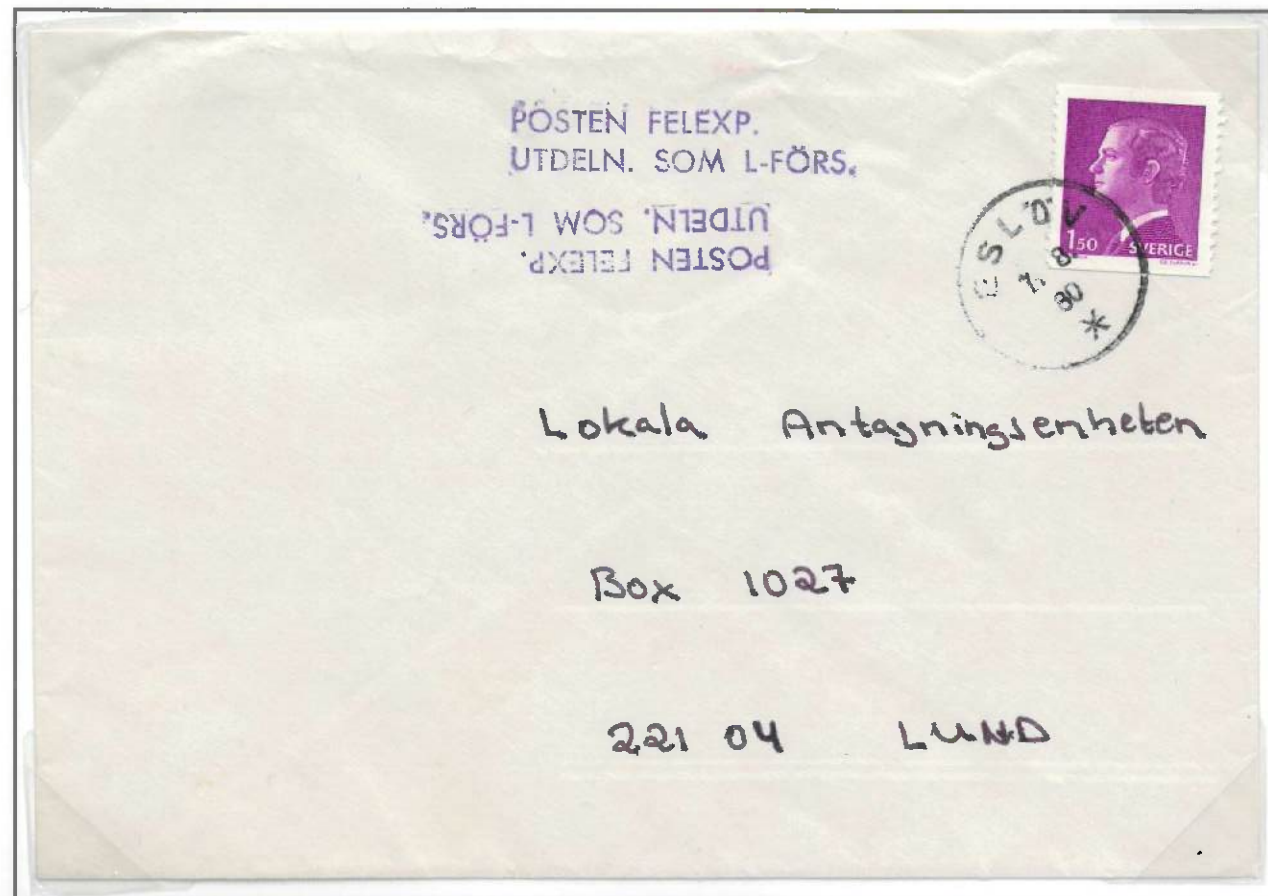 POSTEN FELEXP.
UTDELN. SOM L-FÖRS.
POSTEN FELEXP.
UTDELN. SOM L-FÖRS.
1 50 SVERIGE
ESLÖV
8
80
*
Lokala Antagningsenheten
Box 1027
221 04 LUND